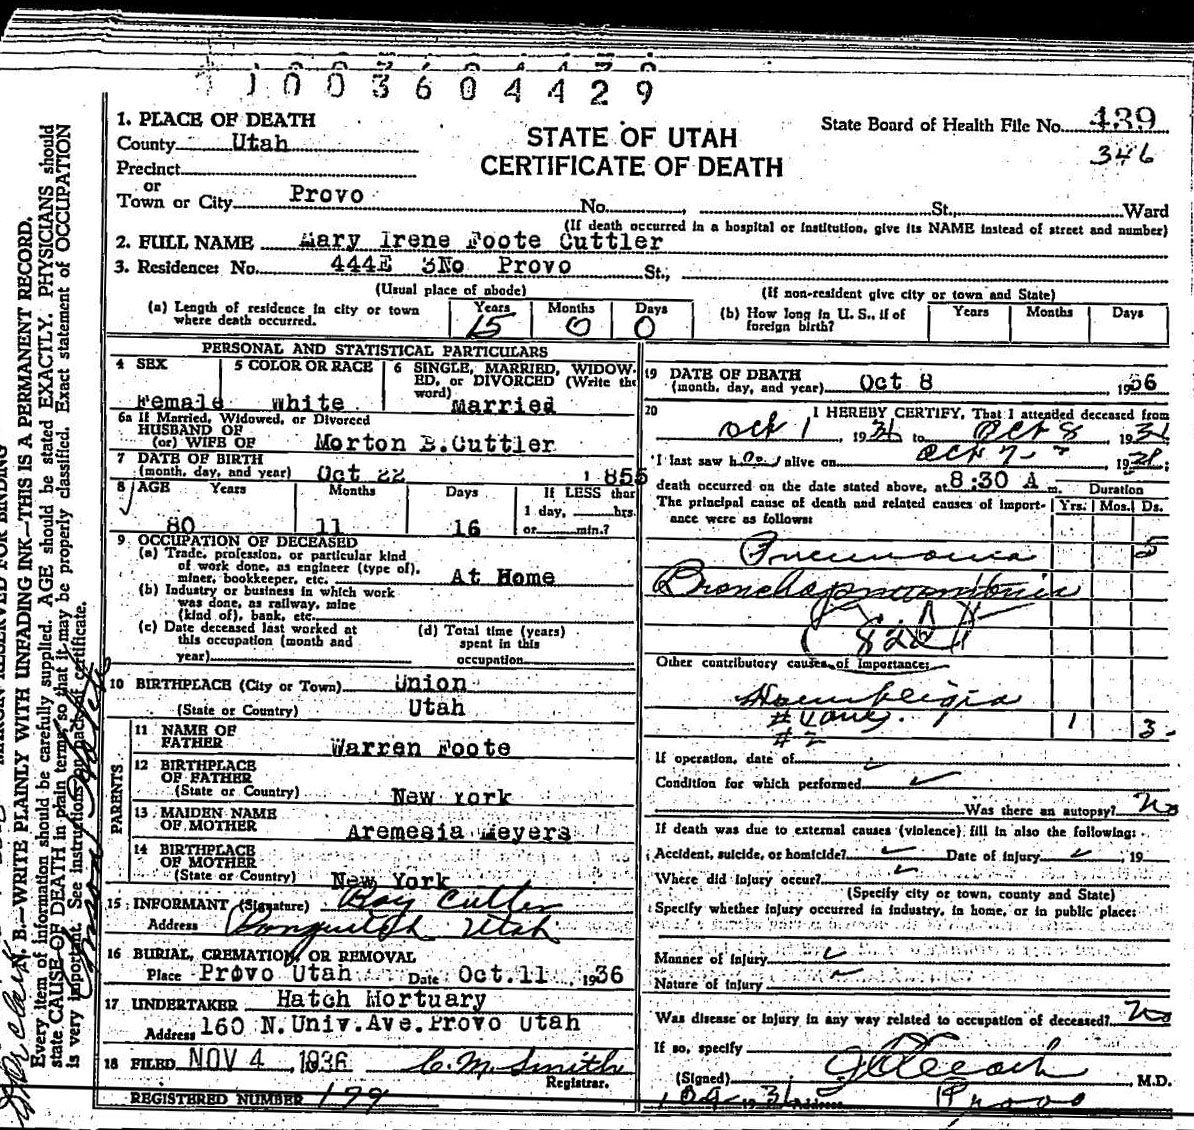 1003604429
1. PLACE OF DEATH
County Utah
STATE OF UTAH
CERTIFICATE OF DEATH
State Board of Health File No. 439
346
Precinct
or
Town or City Provo No. , St., Ward
(If death occurred in a hospital or institution, give its NAME instead of street and number)
2. FULL NAME Mary Irene Foote Cuttler
3. Residence: No. 444E 3No Provo St.,
(Usual place of abode) (If non-resident give city or town and State)
(a) Length of residence in city or town where death occurred. Years 15 Months 0 Days 0
(b) How long in U. S., if of foreign birth? Years Months Days
PERSONAL AND STATISTICAL PARTICULARS
4 SEX Female
5 COLOR OR RACE White
6 SINGLE, MARRIED, WIDOWED, or DIVORCED (Write the word) Married
6a If Married, Widowed, or Divorced
HUSBAND OF
(or) WIFE OF Morton B.Cuttler
7 DATE OF BIRTH
(month, day, and year) Oct 22 1855
8 AGE Years 80 Months 11 Days 16 If LESS than
1 day, hrs.
or min.?
9 OCCUPATION OF DECEASED
(a) Trade, profession, or particular kind
of work done, as engineer (type of),
miner, bookkeeper, etc. At Home
(b) Industry or business in which work
was done, as railway, mine
(kind of), bank, etc.
(c) Date deceased last worked at
this occupation (month and
year)
(d) Total time (years)
spent in this
occupation
10 BIRTHPLACE (City or Town) Union
(State or Country) Utah
PARENTS
11 NAME OF
FATHER Warren Foote
12 BIRTHPLACE
OF FATHER
(State or Country) New York
13 MAIDEN NAME
OF MOTHER Aremesia Meyers
14 BIRTHPLACE
OF MOTHER
(State or Country) New York
15 INFORMANT (Signature) Ray Cutler
Address Panguitch Utah
16 BURIAL, CREMATION, OR REMOVAL
Place Provo Utah Date Oct.11 , 1936
17 UNDERTAKER Hatch Mortuary
Address 160 N.Univ.Ave.Provo Utah
18 FILED NOV 4 , 1936 C. M. Smith
Registrar.
REGISTERED NUMBER 179
19 DATE OF DEATH
(month, day, and year) Oct 8 1936
20 I HEREBY CERTIFY, That I attended deceased from
Oct 1, 1936 to Oct 8, 1936
I last saw h alive on Oct 7, 19
death occurred on the date stated above, at 8:30 A m. Duration
The principal cause of death and related causes of importance were as follows: Yrs. Mos. Ds.
Pneumonia 5
Bronchopneumonia
Other contributory causes of Importance:
Hemiplegia
1 3
# 2
If operation, date of
Condition for which performed
Was there an autopsy? No
If death was due to external causes (violence) fill in also the following:
Accident, suicide, or homicide? Date of injury , 19
Where did injury occur?
(Specify city or town, county and State)
Specify whether injury occurred in industry, in home, or in public place:
Manner of Injury
Nature of Injury
Was disease or injury in any way related to occupation of deceased? No
If so, specify
(Signed) M.D.
Address Provo
MARGIN RESERVED FOR BINDING
N. B.—WRITE PLAINLY WITH UNFADING INK—THIS IS A PERMANENT RECORD.
Every item of information should be carefully supplied. AGE should be stated EXACTLY. PHYSICIANS should
state CAUSE OF DEATH in plain terms, so that it may be properly classified. Exact statement of OCCUPATION
is very important. See instructions on back of certificate.